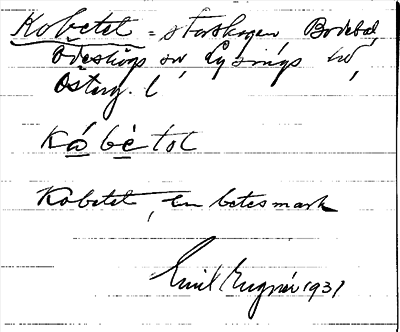 Kobetet = storskogen Bodebol,
Ödeshögs sn, Lysings hd,
Österg. l
Kåbètot
Kobetet, en betesmark
Emil Engnér 1931